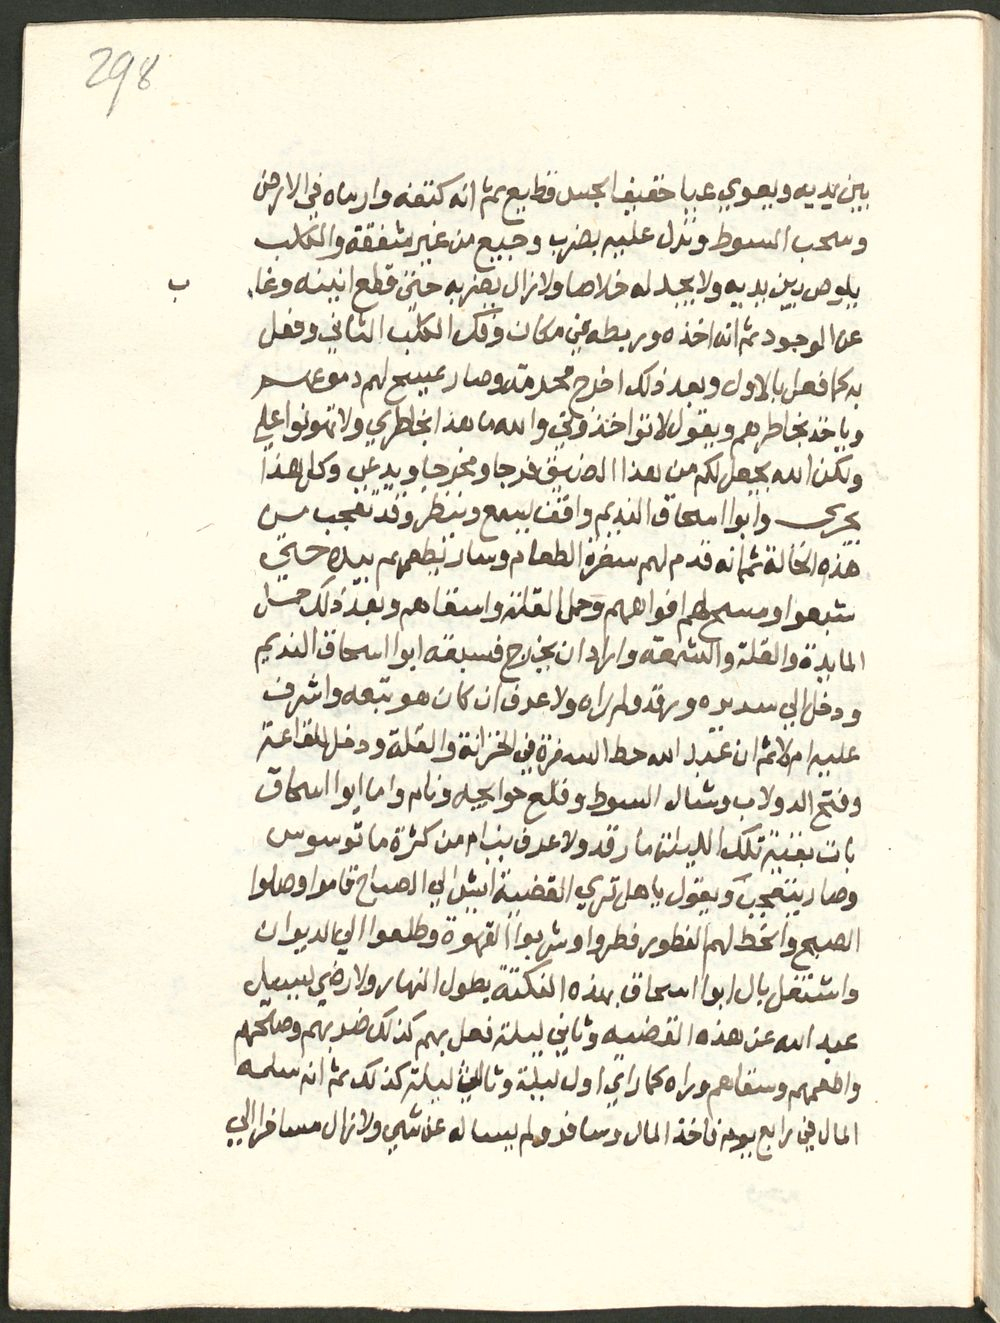 298
بين يديه ويعوي عيا خفيف الجس قطيع ثم انه كتفه وارماه في الارض
وسحب السوط ونزل عليه بضرب وجيع من غير شفقة والكلب
يلوص بين يديه ولا يجد له خلاصا ولا زال يضربه حتى قطع انينه وغا
ب
عن الوجود ثم انه اخذه وربطه في مكان وفك الكلب الثاني وفعل
به كما فعل بالاول وبعد ذلك اخرج محرمته وصار يمسح لهم دموعهم
وياخذ بخاطرهم ويقول لا تواخذوني والله ما هذا بخاطري ولا تهونوا علي
ولكن الله يجعل لكم من هذا الضيق فرجا ومخرجا ويدعي وكل هذا
يجري وابوا اسحاق النديم واقف يسمع وينظر وقد تعجب من
هذه الحالة ثم انه قدم لهم سفرة الطعام وصار يطعمهم بيده حتى
شبعوا ومسح لهم افواههم وحمل القلة واسقاهم وبعد ذلك حمل
المايدة والقلة والشمعه واراد ان يخرج فسبقه ابوا اسحاق النديم
ودخل الي سريره ورقد ولم يراه ولا عرف ان كان هو تبعه واشرف
عليه ام لا ثم ان عبد الله حط السفرة في الخزانة والقلة ودخل القاعة
وفتح الدولاب وشال السوط وقلع حوايجه ونام واما ابوا اسحاق
بات بقية تلك الليلة ما رقد ولا عرف ينام من كثرة ما توسوس
وصار يتعجب ويقول يا هل تري القضية ايش الي الصباح قاموا وصلوا
الصبح وانحط لهم الفطور فطروا وشربوا القهوة وطلعوا الي الديوان
واشتغل بال ابوا اسحاق بهذه النكتة بطول النهار ولا رضي يسال
عبد الله عن هذه القضيه وثاني ليلة فعل بهم كذلك ضربهم وصالحهم
واطعمهم وسقاهم وراه كما راي اول ليلة وثالث ليلة كذلك ثم انه سلمه
المال في رابع يوم فاخذ المال وسافر ولم يساله عن شي ولا زال مسافر الي